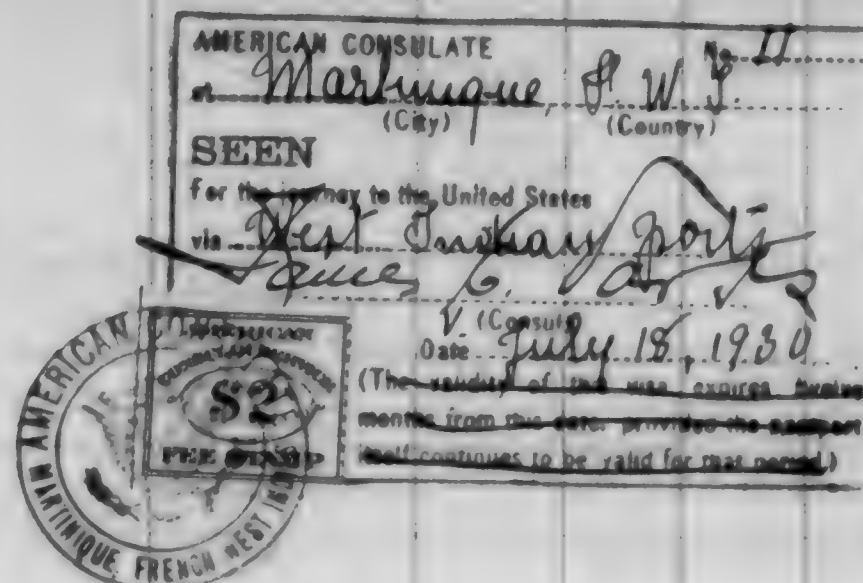 AMERICAN CONSULATE No. II
at Martinique, F. W. I.
(City) (Country)
SEEN
For the journey to the United States
via West Indian ports
(Consul)
Date July 18, 1930
(The validity of this visa expires twelve
months from this date provided the passport
itself continues to be valid for that period.)
AMERICAN
$2
FEE STAMP
MARTINIQUE, FRENCH WEST INDIES